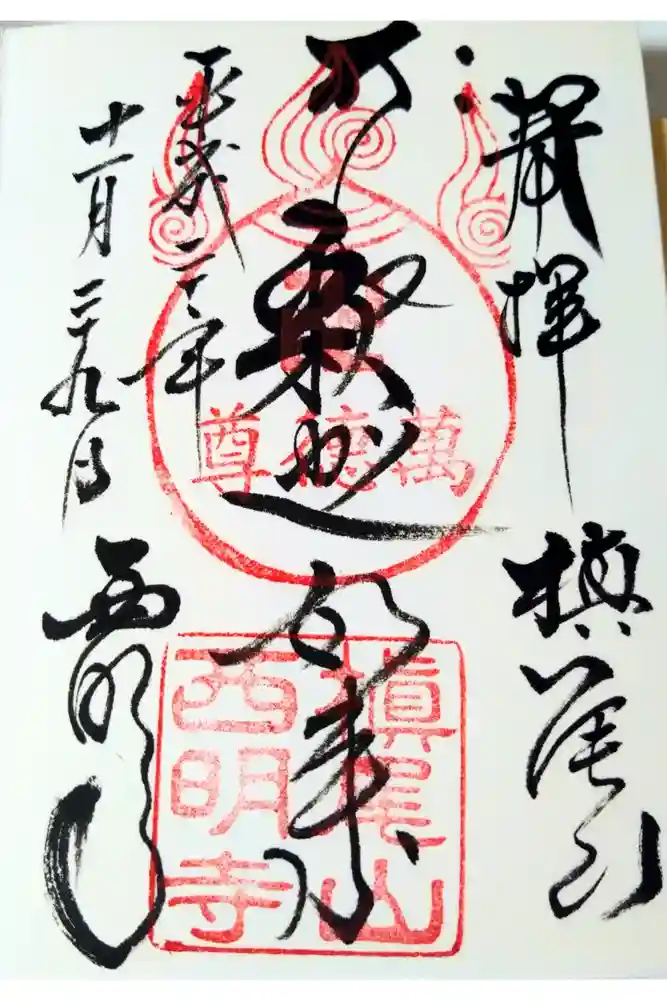 奉拝 槇尾山
釈迦如来
萬德尊
槇尾山
西明寺
平成
十一月二十九日
西明寺